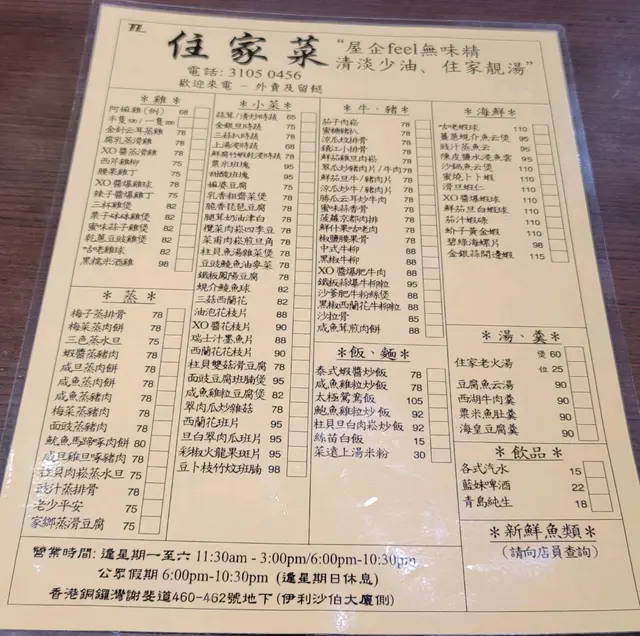 住家菜
"屋企feel無味精
清淡少油、住家靚湯"
電話: 3105 0456
歡迎來電 - 外賣及留餸
*雞*
阿福雞(例) 68
半隻 / 一隻
金針云耳蒸雞 78
腐乳蒸滑雞 78
XO醬蒸滑雞 78
西芹雞柳 75
腰果雞丁 75
XO醬爆雞球 78
辣子醬雞丁 75
三杯雞煲 82
栗子砵砵雞煲 82
蜜味蒜子雞煲 82
乾蔥豆豉雞煲 82
咖哩雞球 82
黑糯米酒雞 98
*蒸*
梅子蒸排骨 78
梅菜蒸肉餅 78
三色蒸水旦 75
蝦醬蒸豬肉 78
咸旦蒸肉餅 78
咸魚蒸肉餅 78
咸魚蒸豬肉 78
梅菜蒸豬肉 78
面豉蒸豬肉 78
魷魚馬蹄啄肉餅 80
咸旦雞旦啄豬肉 78
柱貝肉崧蒸水旦 75
豉汁蒸排骨 78
老少平安 75
家鄉蒸滑豆腐 75
*小菜*
蒜茸/清炒時蔬 65
金銀旦時蔬 75
三菇扒時蔬 78
上湯浸時蔬 68
鮮腐竹蝦乾浸時蔬 78
粟米班塊 95
甜酸班塊 95
麻婆豆腐 75
乳香粗齋菜煲 78
脆香琵琶豆腐 78
腿茸奶油津白 78
欖菜肉崧四季豆 78
菜甫肉崧煎旦角 78
柱貝魚湯雜菜煲 78
豆豉鯪魚油麥菜 78
鐵板鳳陽豆腐 78
蜆介鯪魚球 82
三菇西蘭花 82
油泡花枝片 88
XO醬花枝片 90
瑞士汁墨魚片 88
西蘭花花枝片 90
柱貝雙菇滑豆腐 78
面豉豆腐班腩煲 95
咸魚雞粒豆腐煲 82
翠肉瓜炒雜菇 78
西蘭花班片 95
旦白翠肉瓜班片 95
彩椒火龍果班片 95
豆卜枝竹炆班腩 98
*牛、豬*
茄子肉崧 78
蜜糖豬扒 78
涼瓜炆排骨 78
鎮江小排骨 78
鮮茄雞旦肉崧 78
翠瓜炒豬肉片/牛肉 78
鮮茄旦牛/豬肉片 78
涼瓜炒牛/豬肉片 78
勝瓜云耳炒牛肉 78
蜜味蒜香骨 78
菠蘿京都肉排 78
鮮什果咕老肉 78
椒鹽腰果骨 78
中式牛柳 88
黑椒牛柳 88
XO醬爆肥牛肉 88
鐵板蒜爆牛柳粒 95
沙爹肥牛粉絲煲 88
黑椒西蘭花牛柳粒 88
沙拉骨 85
咸魚茸煎肉餅 88
*飯、麵*
泰式蝦醬炒飯 78
咸魚雞粒炒飯 78
太極鴛鴦飯 105
鮑魚雞粒炒飯 92
柱貝旦白肉崧炒飯 92
絲苗白飯 15
菜遠上湯米粉 30
*海鮮*
咖哩蝦球 110
薑蔥蜆介魚云煲 95
豉汁蒸魚云 95
陳皮鹽水浸魚雲 95
沙鍋魚云煲 110
蜜燒卜卜蝦 110
滑旦蝦仁 110
XO醬蝦球 110
鮮茄旦白蝦球 110
茄汁蝦碌 110
蚧子黃金蝦 110
碧綠海螺片 98
金銀蒜開邊蝦 115
*湯、羹*
住家老火湯 煲 60
位 25
豆腐魚云湯 90
西湖牛肉羹 90
粟米魚肚羹 90
海皇豆腐羹 90
*飲品*
各式汽水 15
藍妹啤酒 22
青島純生 18
*新鮮魚類*
(請向店員查詢)
營業時間: 逢星期一至六 11:30am - 3:00pm/6:00pm-10:30pm
公眾假期 6:00pm-10:30pm (逢星期日休息)
香港銅鑼灣謝斐道460-462號地下(伊利沙伯大廈側)